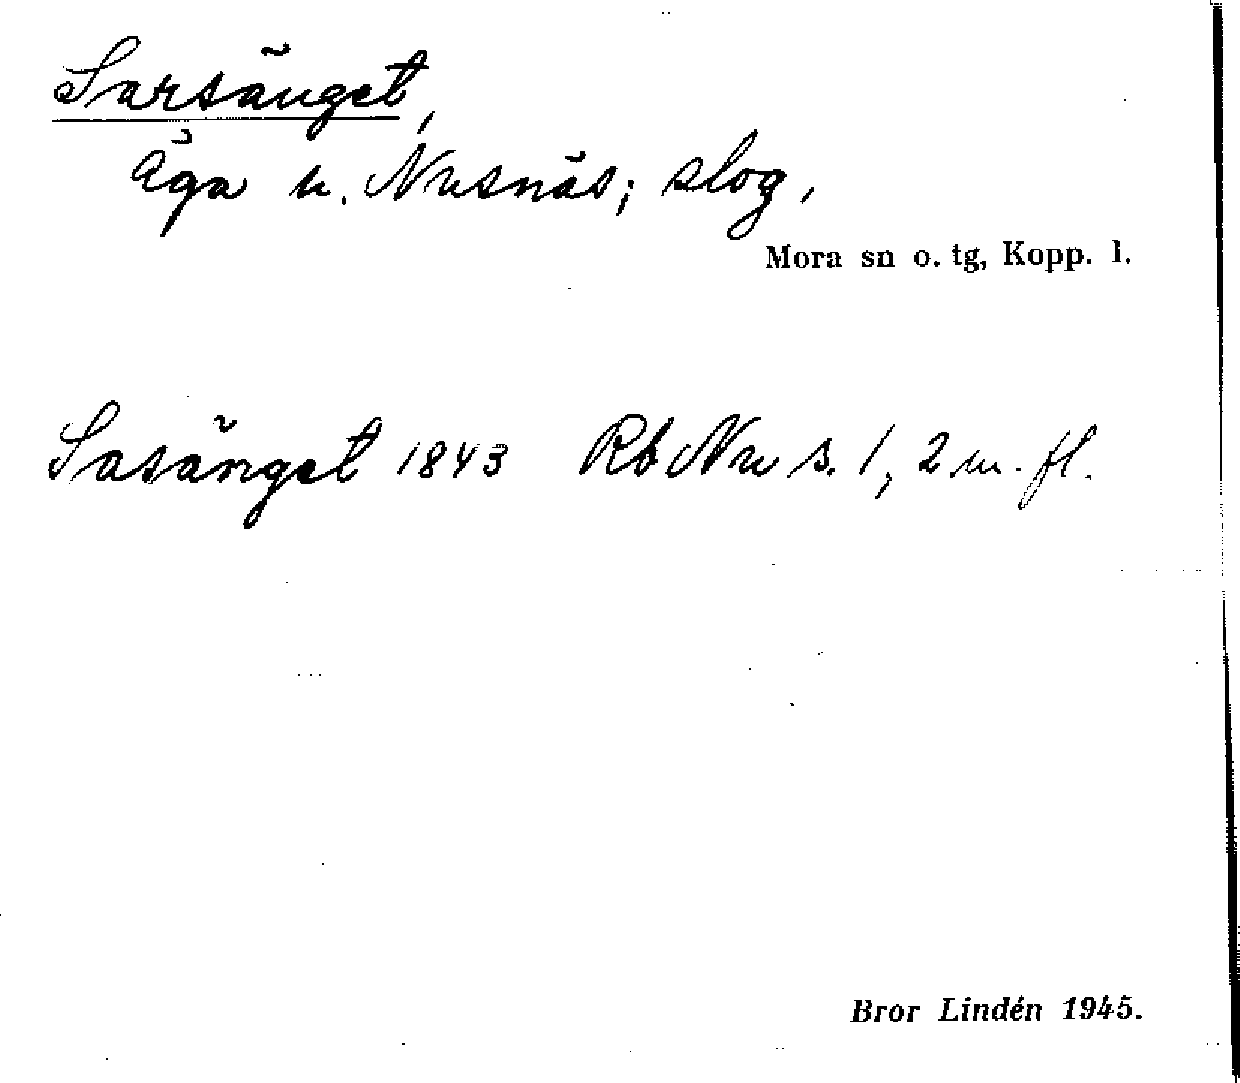 Sarsänget,
Äga u. Nusnäs; slog,
Mora sn o. tg, Kopp. l.
Sasänget 1843 Rb Nu s. 1, 2 m. fl.
Bror Lindén 1945.